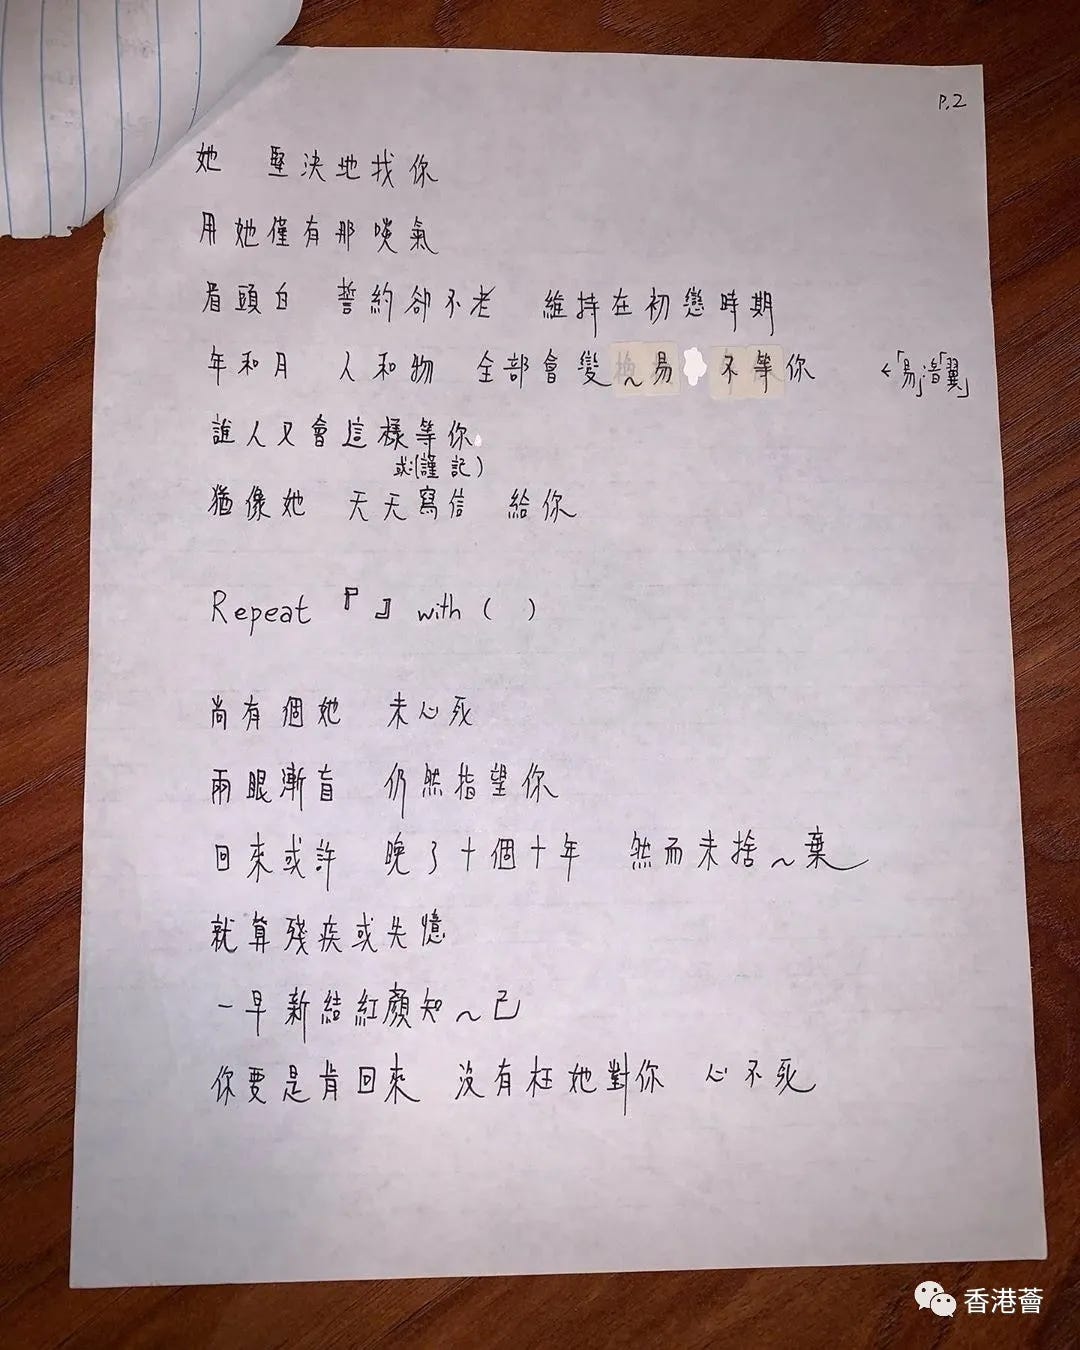 P.2
她 堅決地找你
用她僅有那啖氣
眉頭白 誓約卻不老 維持在初戀時期
年和月 人和物 全部會變~易 不等你 ←「易」音「翼」
誰人又會這樣等你
或:(謹記)
猶像她 天天寫信 給你
Repeat『 』with ( )
尚有個她 未心死
兩眼漸盲 仍然指望你
回來或許 晚了十個十年 然而未捨~棄
就算殘疾或失憶
一早新結紅顏知~己
你要是肯回來 沒有枉她對你 心不死
香港薈